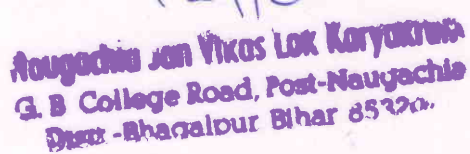 Naugachia Jan Vikas Lok Karyakram
G. B College Road, Post-Naugachia
Distt -Bhagalpur Bihar 85320